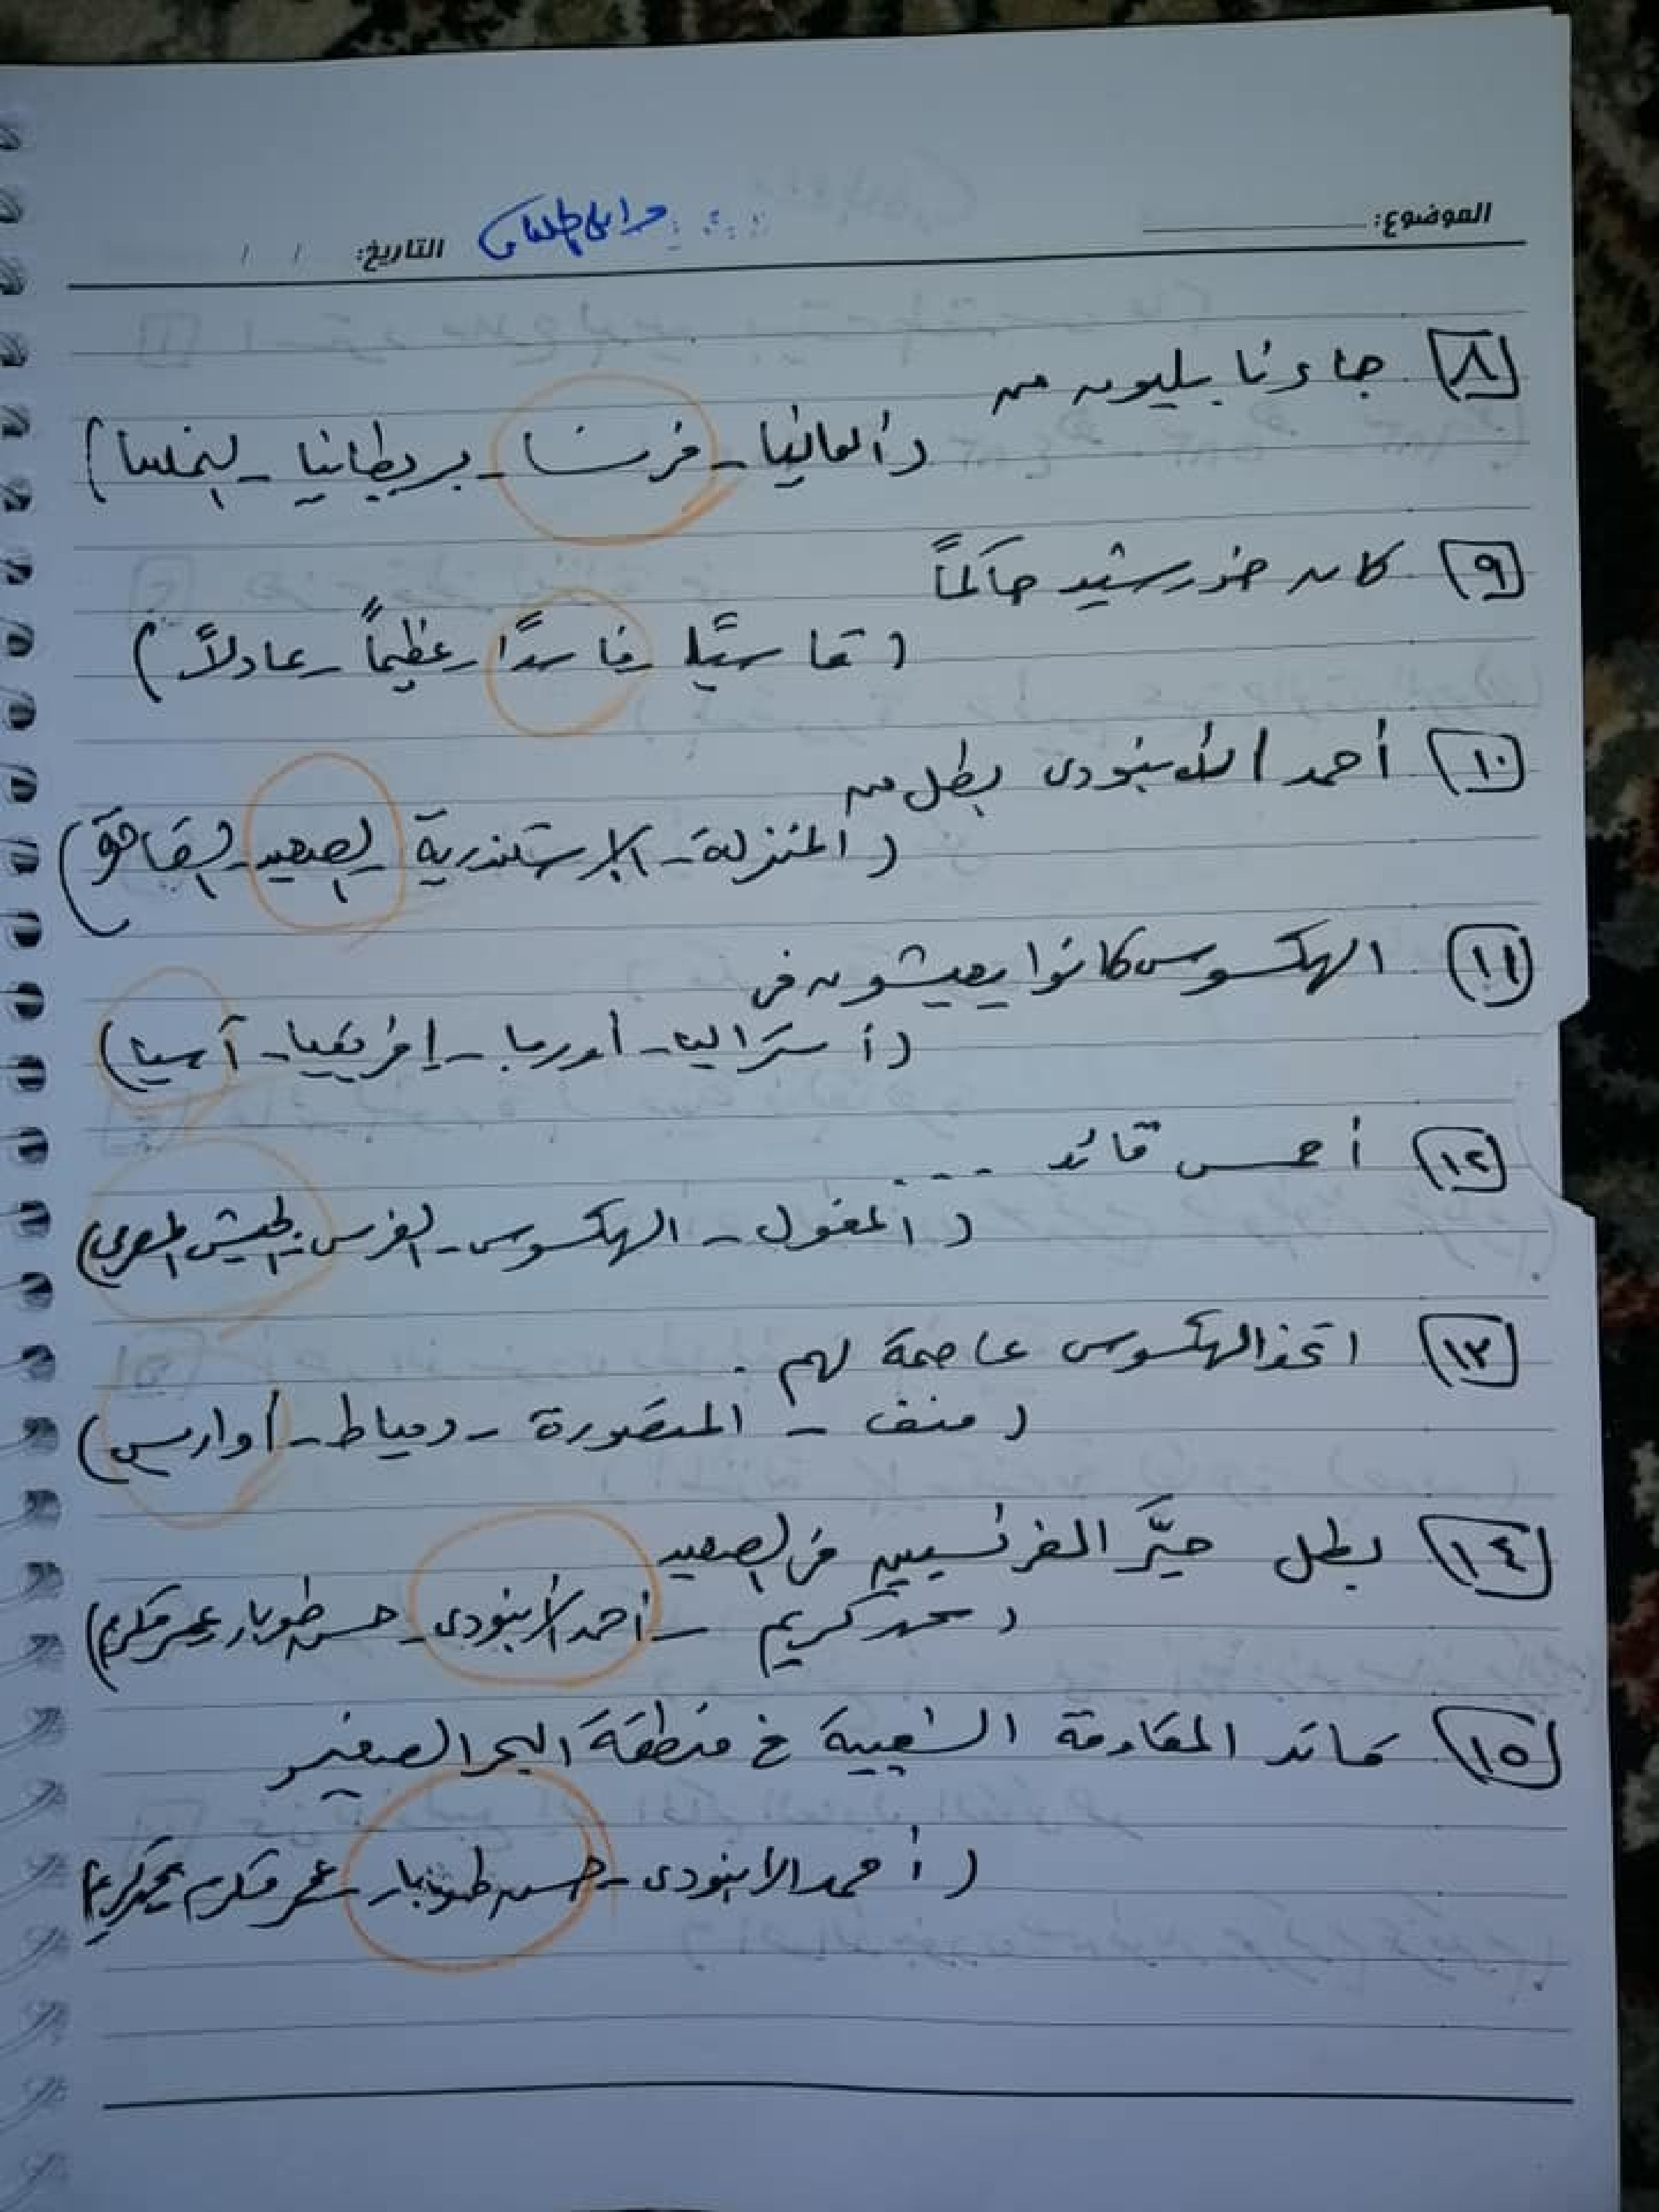 الموضوع:
التاريخ: / /
٨ جاءنا بليون من
(ألمانيا - فرنسا - بريطانيا - النمسا)
٩ كان خورشيد حاكماً
( فاسدًا - عظيماً - عادلاً)
١٠ أحمد الأبنودى بطل من
(المنزلة - الإسكندرية - الصعيد - القاهرة)
١١ الهكسوس كانوا يعيشون فى
(أستراليا - أوربا - إفريقيا - آسيا)
١٢ أحمس قائد ...
(المغول - الهكسوس - الفرس - الجيش المصرى)
١٣ اتخذ الهكسوس عاصمة لهم .
(منف - المنصورة - دمياط - أواريس)
١٤ بطل حيَّر الفرنسيين فى الصعيد
(محمد كريم - أحمد الأبنودى - حسن طوبار - عمر مكرم)
١٥ قائد المقاومة الشعبية فى منطقة البحر الصغير
(أحمد الابنودى - حسن طوبار - عمر مكرم - محمد كريم)